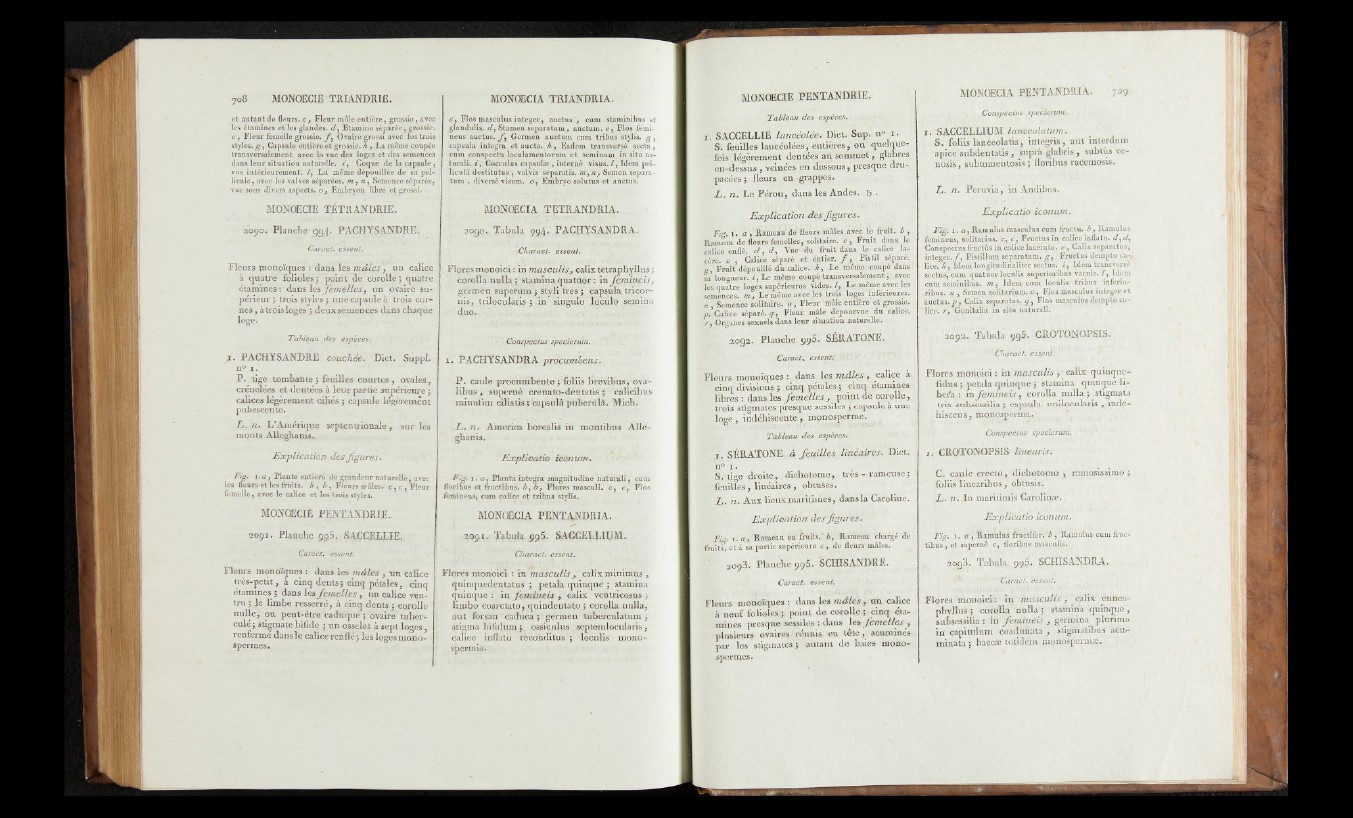 708 MONOECIE TRIANDRIE.
et autant de fleurs. c, Fleur mâle entière, grossie, avec
les étamines et les glandes. d, Etamine séparée, grossie.
e, Fleur femelle grossie. f, Ovaire grossi avec les trois
styles. g, Capsule entière et grossie. h, La même coupée
transversalement, avec la vue des loges et des semences
dans leur situation naturelle. i, Coque de la capsule,
vue intérieurement. l, La même dépouillée de sa pel-
licule, avec les valves séparées. m, n, Semence séparée,
vue sous divers aspects. o, Embryon libre et grossi.
MONOECIE TÉTRANDRIE.
2090. Planche 994. PACHYSANDRE.
Caract. essent.
Fleurs monoïques : dans les mâles, un calice
à quatre folioles ; point de corolle ; quatre
étamines : dans les femelles, un ovaire su-
périeur ; trois styles ; une capsule à trois cor-
nes, à trois loges ; deux semences dans chaque
loge.
Tableau des espèces.
1. PACHYSANDRE couchée. Dict. Suppl.
n° 1.
P. tige tombante ; feuilles courtes, ovales,
crénelées et dentées à leur partie supérieure ;
calices légèrement ciliés ; capsule légèrement
pubescente.
L. n. L'Amérique septentrionale, sur les
monts Alleghanis.
Explication des figures.
Fig. 1. a, Plante entière de grandeur naturelle, avec
les fleurs et les fruits. b, b, Fleurs mâles. c, c, Fleur
femelle, avec le calice et les trois styles.
MONOECIE PENTANDRIE.
2091. Planche 995. SACCELLIE.
Caract. essent.
Fleurs monoïques : dans les mâles, un calice
très-petit, à cinq dents ; cinq pétales, cinq
étamines ; dans les femelles, un calice ven-
tru ; le limbe resserré, à cinq dents ; corolle
nulle, ou peut-être caduque ; ovaire tuber-
culé ; stigmate bifide ; un osselet à sept loges,
renfermé dans le calice renflé ; les loges mono-
spermes.
MONOECIA TRIANDRIA.
c, Flos masculus integer, auctus, cum staminibus et
glandulis. d, Stamen separatum, auctum. e, Flos femi-
neus auctus. f, Germen auctum cum tribus stylis. g,
capsula integra et aucta. h, Eadem transversè secta,
cum conspectu loculamentorum et seminum in situ na-
turali. i, Cocculus capsulæ, internè visus. l, Idem pel-
liculâ destitutus, valvis separatis. m, n, Semen separa-
tum, diversè visum. o, Embryo solutus et auctus.
MONOECIA TETRANDRIA.
2090. Tabula 994. PACHYSANDRA.
Charact. essent.
Flores monoici : in masculis, calix tetraphyllus ;
corolla nulla ; stamina quatuor : in femineis,
germen superum ; styli tres ; capsula tricor-
nis, trilocularis ; in singulo loculo semina
duo.
Conspectus specierum.
1. PACHYSANDRA procumbens.
P. caule procumbente ; foliis brevibus, ova-
libus, supernè crenato-dentatis ; calicibus
minutim ciliatis ; capsulâ puberulâ. Mich.
L. n. America borealis in montibus Alle-
ghanis.
Explicatio iconum.
Fig. 1. a, Planta integra magnitudine naturali, cum
floribus et fructibus. b, b, Flores masculi. c, c, Flos
femineus, cum calice et tribus stylis.
MONOECIA PENTANDRIA.
2091. Tabula 995. SACCELLIUM.
Charact. essent.
Flores monoici : in masculis, calix minimus,
quinquedentatus ; petala quinque ; stamina
quinque : in femineis, calix ventricosus ;
limbo coarctato, quindentato ; corolla nulla,
aut forsan caduca ; germen tuberculatum ;
stigma bifidum ; ossiculus septemlocularis,
calice inflato reconditus ; loculis mono-
spermis.
MONOECIE PENTANDRIE.
Tableau des espèces.
1. SACCELLIE lancéolée. Dict. Sup. n° 1.
S. feuilles lancéolées, entières, ou quelque-
fois légèrement dentées au sommet, glabres
en-dessus, veinées en dessous, presque dru-
pacées ; fleurs en grappes.
L. n. Le Pérou, dans les Andes. ♄.
Explication des figures.
Fig. 1. a, Rameau de fleurs mâles avec le fruit. b,
Rameau de fleurs femelles, solitaire. c, Fruit dans le
calice enflé. d, d, Vue du fruit dans le calice la-
céré. e, Calice séparé et entier. f, Pistil séparé.
g, Fruit dépouillé du calice. h, Le même coupé dans
sa longueur. i, Le même coupé transversalement, avec
les quatre loges supérieures vides. l, Le même avec les
semences. m, Le même avec les trois loges inférieures.
n, Semence solitaire. o, Fleur mâle entière et grossie.
p, Calice séparé. q, Fleur mâle dépourvue du calice.
r, Organes sexuels dans leur situation naturelle.
2092. Planche 995. SÉRATONE.
Caract. essent.
Fleurs monoïques : dans les mâles, calice à
cinq divisions ; cinq pétales ; cinq étamines
libres : dans les femelles, point de corolle,
trois stigmates presque sessiles ; capsule à une
loge, indéhiscente, monosperme.
Tableau des espèces.
1. SÉRATONE à feuilles linéaires. Dict.
n° 1.
S. tige droite, dichotome, très-rameuse ;
feuilles, linéaires, obtuses.
L. n. Aux lieux maritimes, dans la Caroline.
Explication des figures.
Fig. 1. a, Rameau en fruits. b, Rameau chargé de
fruits, et à sa partie supérieure c, de fleurs mâles.
2093. Planche 995. SCHISANDRE.
Caract. essent.
Fleurs monoïques : dans les mâles, un calice
à neuf folioles ; point de corolle ; cinq éta-
mines presque sessiles : dans les femelles,
plusieurs ovaires réunis en tête, acuminés
par les stigmates ; autant de baies mono-
spermes.
MONOECIA PENTANDRIA. 709
Conspectus specierum.
1. SACCELLIUM lanceolatum.
S. foliis lanceolatis, integris, aut interdum
apice subdentatis, suprà glabris, subtùs ve-
nosis, subtomentosis ; floribus racemosis.
L. n. Peruvia, in Andibus.
Explicatio iconum.
Fig. 1. a, Ramulus masculus cum fructu. b, Ramulus
femineus, solitarius. c, c, Fructus in calice inflato. d, d,
Conspectus fructûs in calice lacerato. e, Calix separatus,
integer. f, Pistillum separatum. g, Fructus dempto ca-
lice. h, Idem longitudinaliter sectus. i, Idem transversè
sectus, cum quatuor loculis superioribus vacuis. l, Idem
cum seminibus. m, Idem cum loculis tribus inferio-
ribus. n, Semen solitarium. o, Flos masculus integer et
auctus. p, Calix separatus. q, Flos masculus dempto ca-
lice. r, Genitalia in situ naturali.
2092. Tabula 995. CROTONOPSIS.
Charact. essent.
Flores monoici : in masculis, calix quinque-
fidus ; petala quinque ; stamina quinque li-
bera : in femineis, corolla nulla ; stigmata
tria subsessilia ; capsula unilocularis, inde-
hiscens, monosperma.
Conspectus specierum.
1. CROTONOPSIS linearis.
C. caule erecto, dichotomo, ramosissimo ;
foliis linearibus, obtusis.
L. n. In maritimis Carolinæ.
Explicatio iconum.
Fig. 1. a, Ramulus fructifer. b, Ramulus cum fruc-
tibus, et supernè c, floribus masculis.
2093. Tabula 995. SCHISANDRA.
Caract. essent.
Flores monoici : in masculis, calix ennea-
phyllus ; corolla nulla ; stamina quinque,
subsessilia : in femineis, germina plurima
in capitulum coadunata, stigmatibus acu-
minata ; baccæ totidem monospermæ.